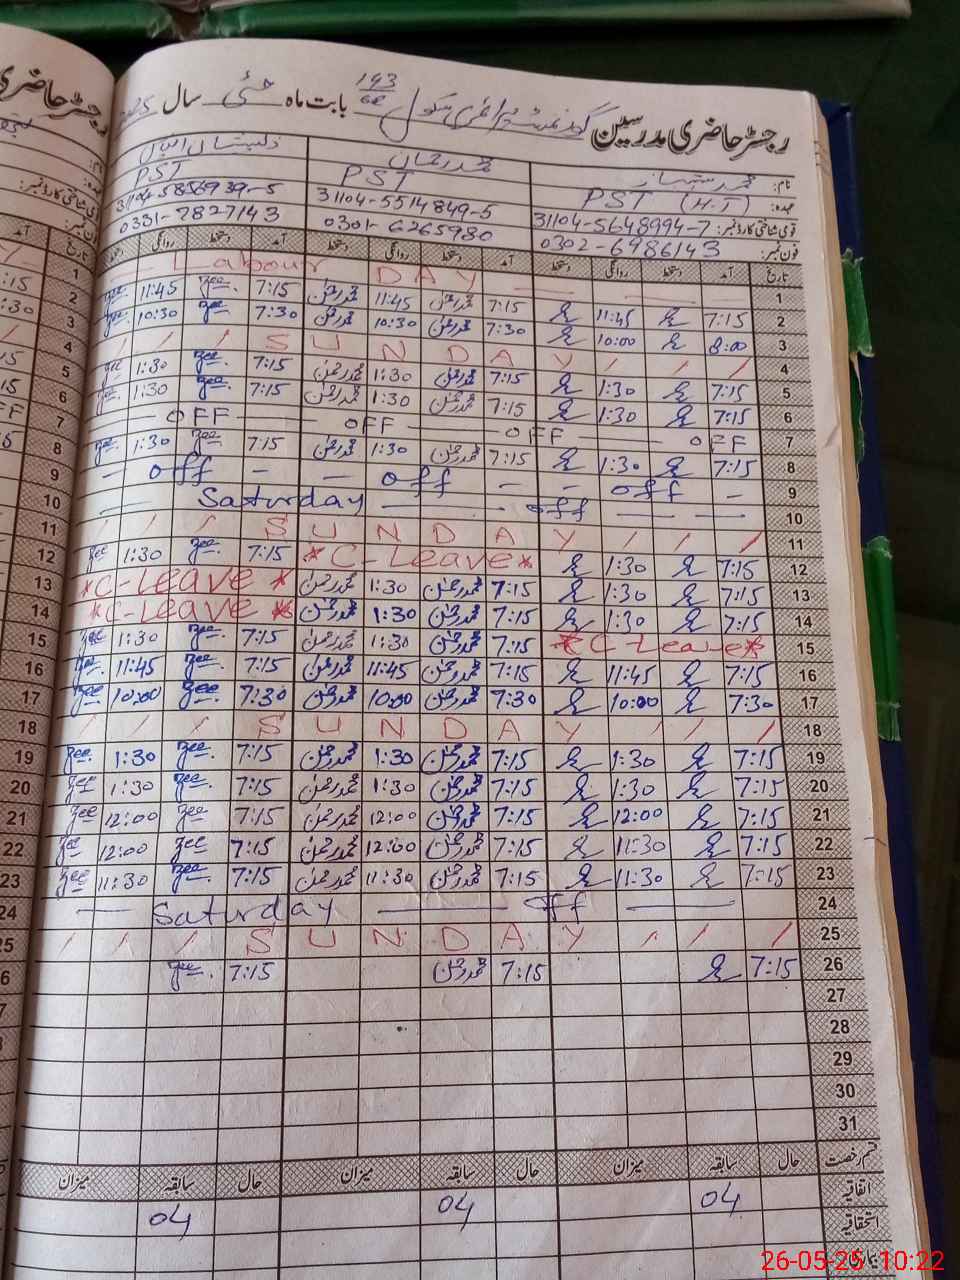 رجسٹر حاضری مدرسین گورنمنٹ پرائمری سکول 143/6R بابت ماہ مئی سال 25
نام:
عہدہ: PST (H.T) PST PST
قومی شناختی کارڈ نمبر: 31104-5648994-7 31104-5514849-5 31104-5856939-5
فون نمبر: 0302-6986143 0301-6265980 0331-7827143
تاریخ آمد دستخط روانگی دستخط آمد دستخط روانگی دستخط آمد دستخط روانگی دستخط
1 Labour DAY
2 7:15 11:45 7:15 محمد رحمٰن 11:45 محمد رحمٰن 7:15 Zee. 11:45 Zee.
3 8:00 10:00 7:30 محمد رحمٰن 10:30 محمد رحمٰن 7:30 Zee 10:30 Zee.
4 / / / SUNDAY / / /
5 7:15 1:30 7:15 محمد رحمٰن 1:30 محمد رحمٰن 7:15 Zee. 1:30 Zee
6 7:15 1:30 7:15 محمد رحمٰن 1:30 محمد رحمٰن 7:15 Zee. 1:30 Zee.
7 OFF OFF OFF OFF
8 7:15 1:30 7:15 محمد رحمٰن 1:30 محمد رحمٰن 7:15 Zee 1:30 Zee.
9 – off – – off – – off –
10 Saturday off
11 / / / SUNDAY / / /
12 7:15 1:30 *C-Leave* 7:15 Zee. 1:30 Zee
13 7:15 1:30 7:15 محمد رحمٰن 1:30 محمد رحمٰن *C-Leave*
14 7:15 1:30 7:15 محمد رحمٰن 1:30 محمد رحمٰن *C-Leave*
15 *C-Leave* 7:15 محمد رحمٰن 1:30 محمد رحمٰن 7:15 Zee. 1:30 Zee
16 7:15 11:45 7:15 محمد رحمٰن 11:45 محمد رحمٰن 7:15 Zee. 11:45 Zee.
17 7:30 10:00 7:30 محمد رحمٰن 10:00 محمد رحمٰن 7:30 Zee. 10:00 Zee.
18 / / / SUNDAY / / /
19 7:15 1:30 7:15 محمد رحمٰن 1:30 محمد رحمٰن 7:15 Zee. 1:30 Zee.
20 7:15 1:30 7:15 محمد رحمٰن 1:30 محمد رحمٰن 7:15 Zee. 1:30 Zee
21 7:15 12:00 7:15 محمد رحمٰن 12:00 محمد رحمٰن 7:15 Zee 12:00 Zee
22 7:15 11:30 7:15 محمد رحمٰن 12:00 محمد رحمٰن 7:15 Zee 12:00 Zee
23 7:15 11:30 7:15 محمد رحمٰن 11:30 محمد رحمٰن 7:15 Zee. 11:30 Zee
24 Saturday off
25 / / / SUNDAY / / /
26 7:15 7:15 محمد رحمٰن 7:15 Zee.
27
28
29
30
31
قسم رخصت حال سابقہ میزان حال سابقہ میزان حال سابقہ میزان
اتفاقیہ 04 04 04
استحقاقیہ
بیماری
26-05-25 10:22